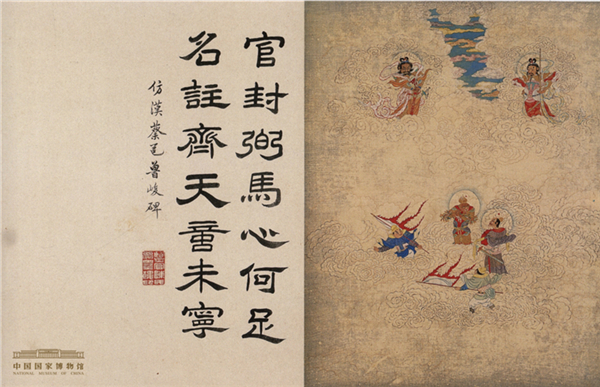 官封弼馬心何足
名註齊天意未寧
仿漢蔡邕魯峻碑
中国国家博物馆
NATIONAL MUSEUM OF CHINA